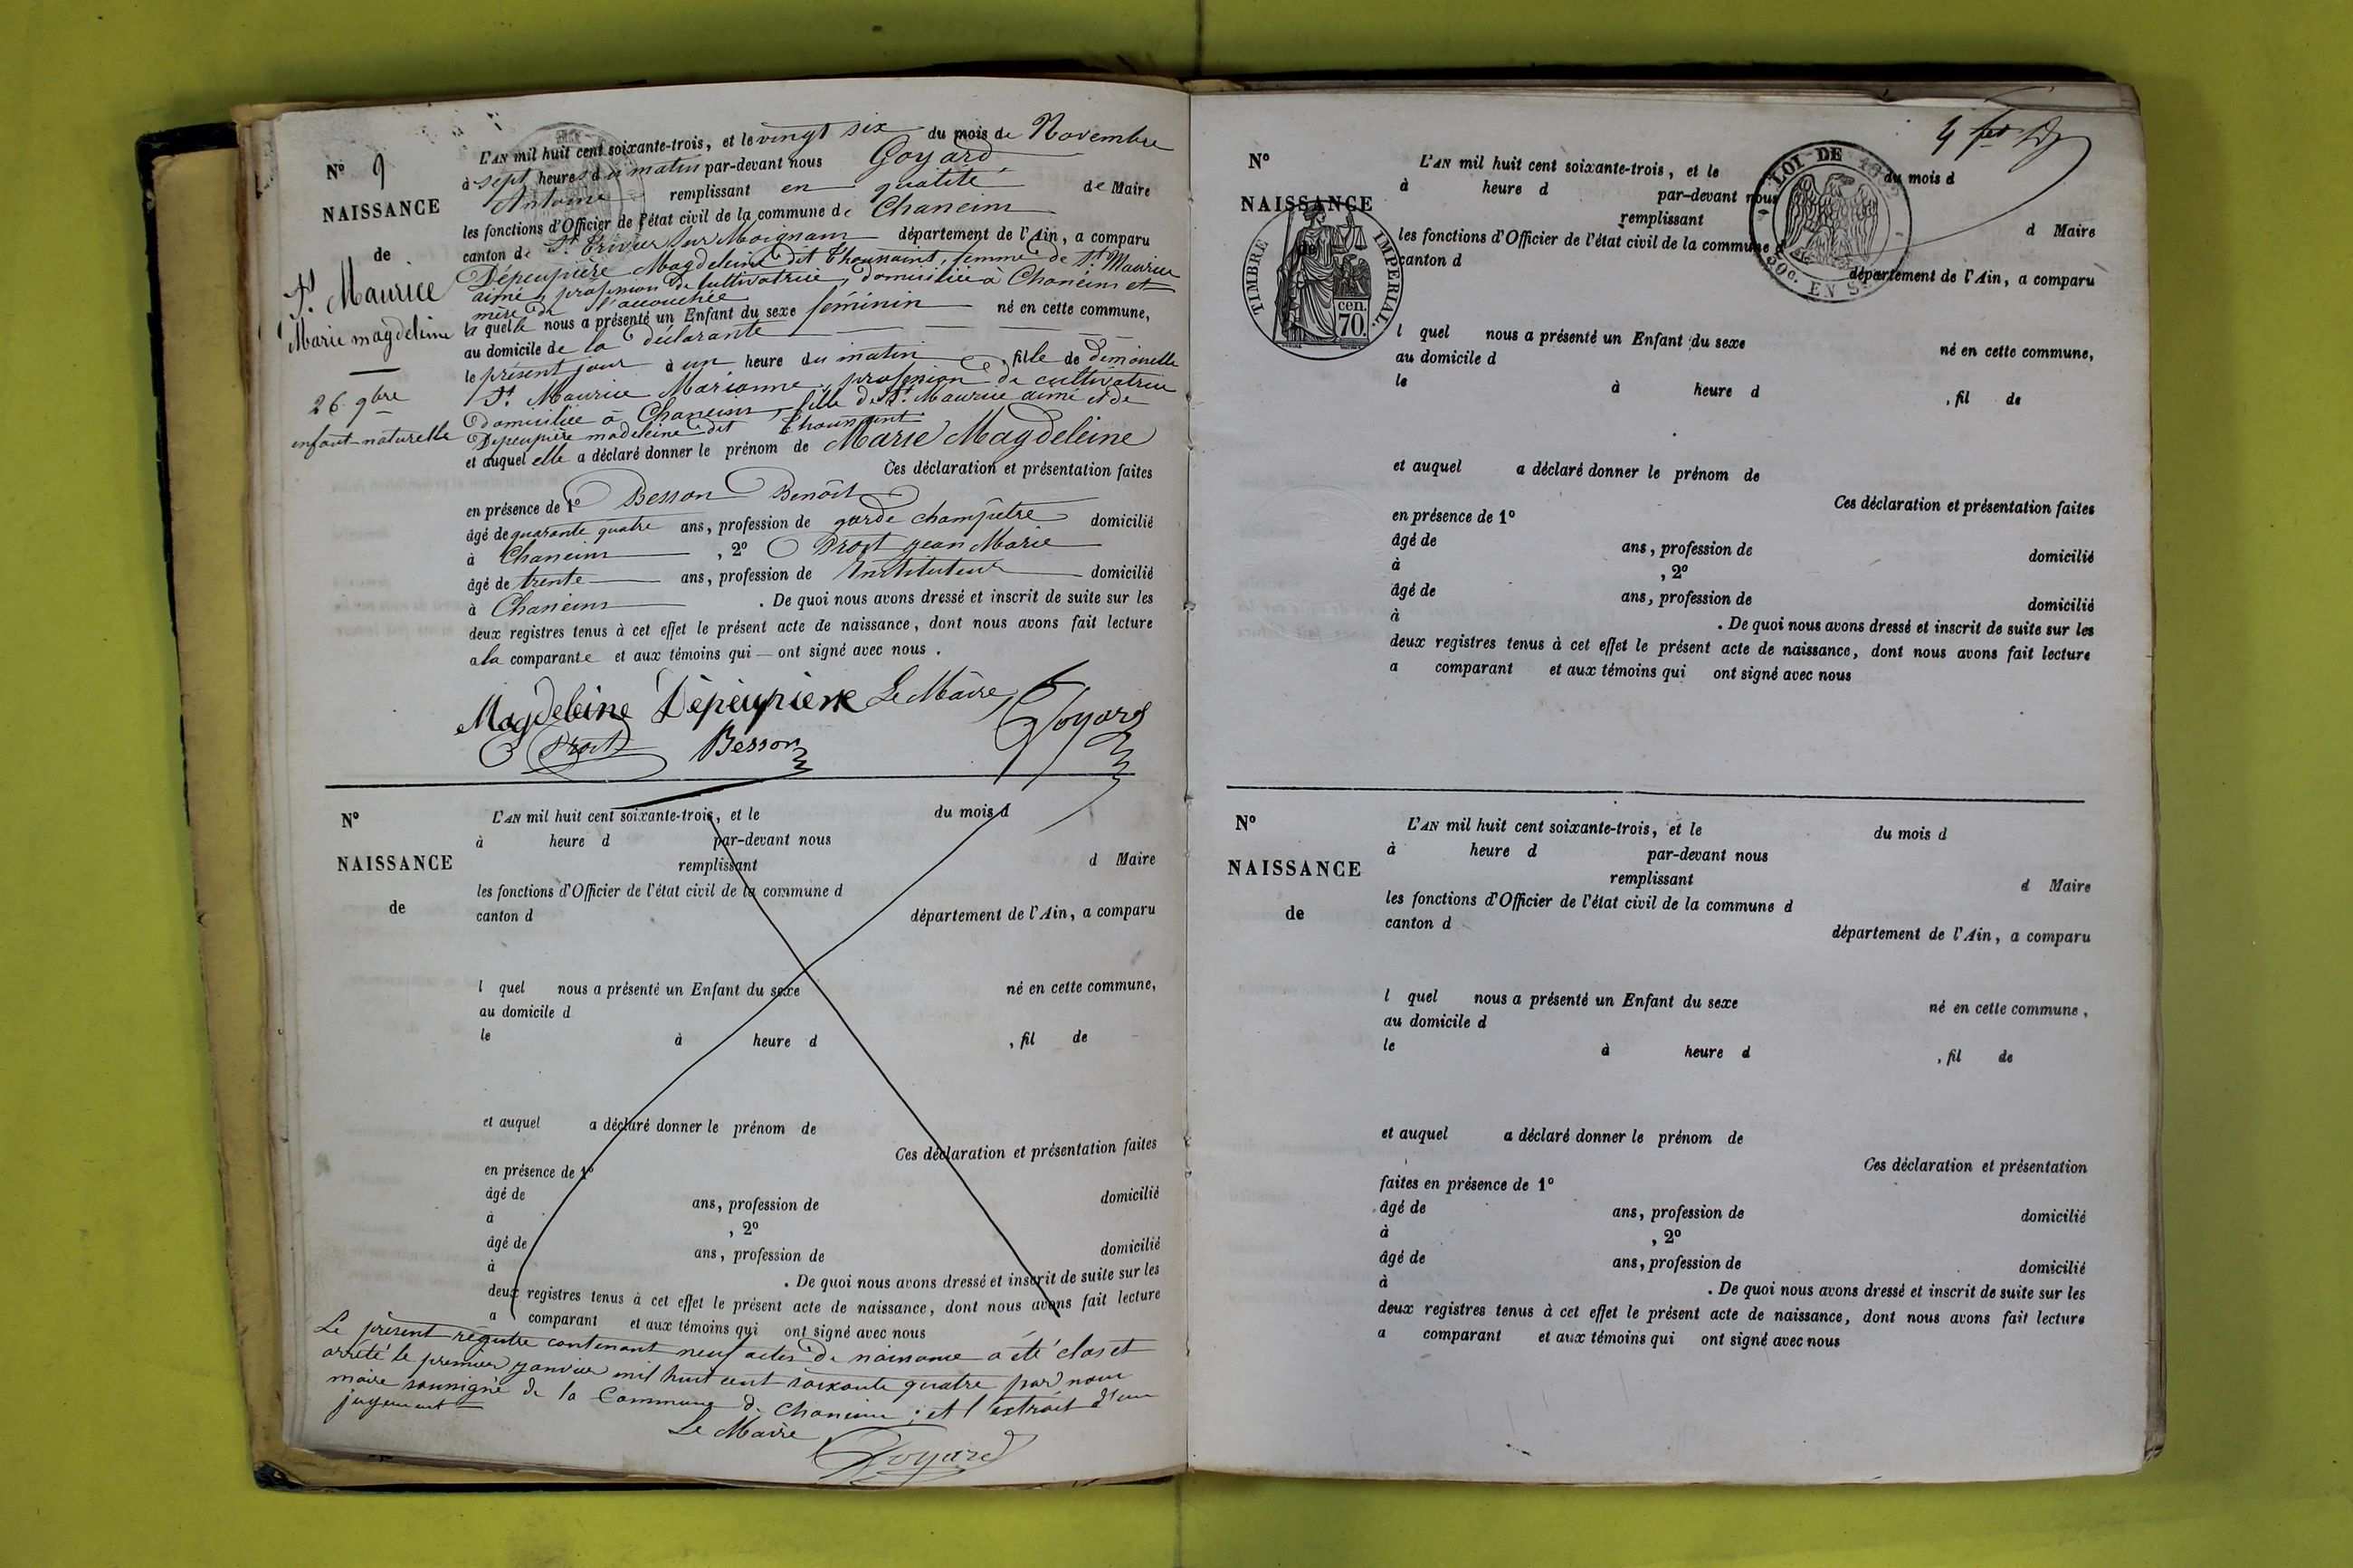 N° 9
NAISSANCE
de
St. Maurice
Marie magdeleine
26 9bre
enfant naturelle
L'AN mil huit cent soixante-trois, et le vingt six du mois de Novembre
à sept heures du matin par-devant nous Goyard
Antoine remplissant en qualité de Maire
les fonctions d'Officier de l'état civil de la commune de Chaneins
canton de St. Trivier sur Moignans département de l'Ain, a comparu
Dépeupière Magdeleine dit Thoussaint, femme de St. Maurice
aimé, profession de cultivatrice, domiciliée à Chaneins et
mère de l'accouchée
la quelle nous a présenté un Enfant du sexe féminin né en cette commune,
au domicile de la déclarante
le présent jour à un heure du matin, fille de demoiselle
St. Maurice Marianne, profession de cultivatrice
domiciliée à Chaneins, fille de St. Maurice aimé et de
Dépeupière madeleine dit Thoussaint
et auquel elle a déclaré donner le prénom de Marie Magdeleine
Ces déclaration et présentation faites
en présence de 1° Besson Benoît
âgé de quarante quatre ans, profession de garde champêtre domicilié
à Chaneins, 2° Drost jean Marie
âgé de trente ans, profession de Instituteur domicilié
à Chaneins. De quoi nous avons dressé et inscrit de suite sur les
deux registres tenus à cet effet le présent acte de naissance, dont nous avons fait lecture
a la comparante et aux témoins qui ont signé avec nous.
Magdeleine Dépeupière Le Maire Goyard
Drost Besson
N°
NAISSANCE
de
L'AN mil huit cent soixante-trois, et le du mois d
à heure d par-devant nous
remplissant d Maire
les fonctions d'Officier de l'état civil de la commune d
canton d département de l'Ain, a comparu
l quel nous a présenté un Enfant du sexe né en cette commune,
au domicile d
le à heure d , fil de
et auquel a déclaré donner le prénom de
Ces déclaration et présentation faites
en présence de 1°
âgé de ans, profession de domicilié
à , 2°
âgé de ans, profession de domicilié
à . De quoi nous avons dressé et inscrit de suite sur les
deux registres tenus à cet effet le présent acte de naissance, dont nous avons fait lecture
a comparant et aux témoins qui ont signé avec nous
Le présent régistre contenant neuf actes de naissance a été clos et
arrêté le premier janvier mil huit cent soixante quatre par nous
maire soussigné de la Commune de Chaneins; et l'extrait d'un
jugement
Le Maire
Goyard
4
N°
NAISSANCE
de
TIMBRE IMPERIAL.
cen.
70.
LOI DE
50c. EN S
L'AN mil huit cent soixante-trois, et le du mois d
à heure d par-devant nous
remplissant d Maire
les fonctions d'Officier de l'état civil de la commune d
canton d département de l'Ain, a comparu
l quel nous a présenté un Enfant du sexe né en cette commune,
au domicile d
le à heure d , fil de
et auquel a déclaré donner le prénom de
Ces déclaration et présentation faites
en présence de 1°
âgé de ans, profession de domicilié
à , 2°
âgé de ans, profession de domicilié
à . De quoi nous avons dressé et inscrit de suite sur les
deux registres tenus à cet effet le présent acte de naissance, dont nous avons fait lecture
a comparant et aux témoins qui ont signé avec nous
N°
NAISSANCE
de
L'AN mil huit cent soixante-trois, et le du mois d
à heure d par-devant nous
remplissant d Maire
les fonctions d'Officier de l'état civil de la commune d
canton d département de l'Ain, a comparu
l quel nous a présenté un Enfant du sexe né en cette commune,
au domicile d
le à heure d , fil de
et auquel a déclaré donner le prénom de
Ces déclaration et présentation
faites en présence de 1°
âgé de ans, profession de domicilié
à , 2°
âgé de ans, profession de domicilié
à . De quoi nous avons dressé et inscrit de suite sur les
deux registres tenus à cet effet le présent acte de naissance, dont nous avons fait lecture
a comparant et aux témoins qui ont signé avec nous